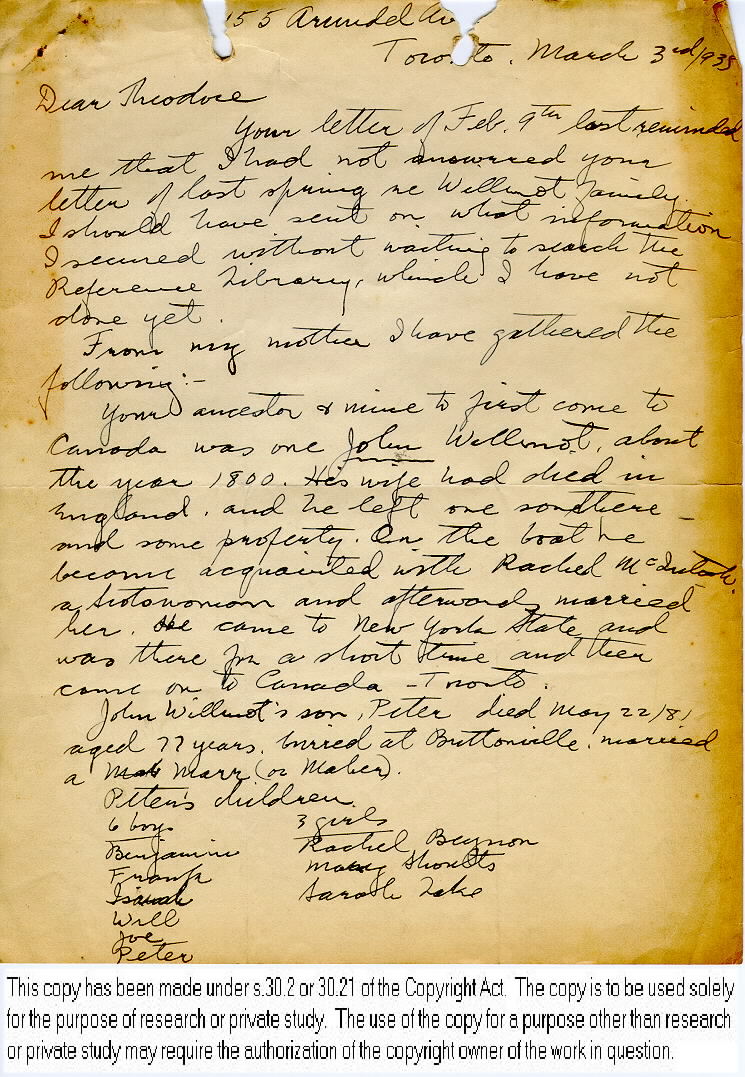 155 Arundel Av
Toronto. March 3rd/1935
Dear Theodore
Your letter of Feb. 9th last reminded
me that I had not answered your
letter of last spring re Willmot family.
I should have sent on what information
I secured without waiting to search the
Reference Library, which I have not
done yet.
From my mother I have gathered the
following:-
Your ancestor & mine to first come to
Canada was one John Willmot, about
the year 1800. His wife had died in
England, and he left one son there -
and some property. On the boat he
became acquainted with Rachel
a Scotswoman and afterwards married
her. He came to New York State and
was there for a short time and then
came on to Canada - Toronto.
John Willmot's son, Peter died May 22/81
aged 77 years. burried at Buttonville. married
a Marr (or Maber).
Peter's children.
6 boys 3 girls
Benjamin Rachel Beynon
Frank Mary Shoults
Isaiah Sarah Lake
Will
Joe
Peter
This copy has been made under s.30.2 or 30.21 of the Copyright Act. The copy is to be used solely
for the purpose of research or private study. The use of the copy for a purpose other than research
or private study may require the authorization of the copyright owner of the work in question.